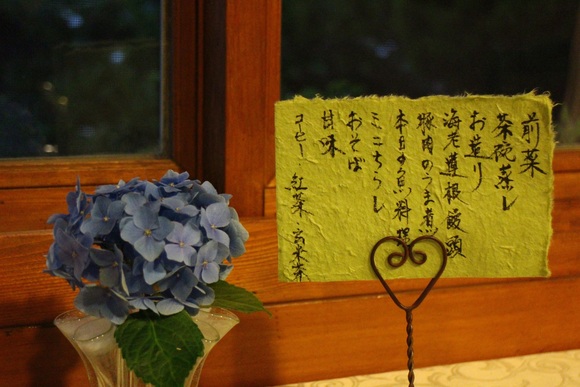 前菜
茶碗蒸し
お造り
海老蓮根饅頭
豚肉のうま煮
本日の魚料理
ミニちらし
おそば
甘味
コーヒー 紅茶 玄米茶